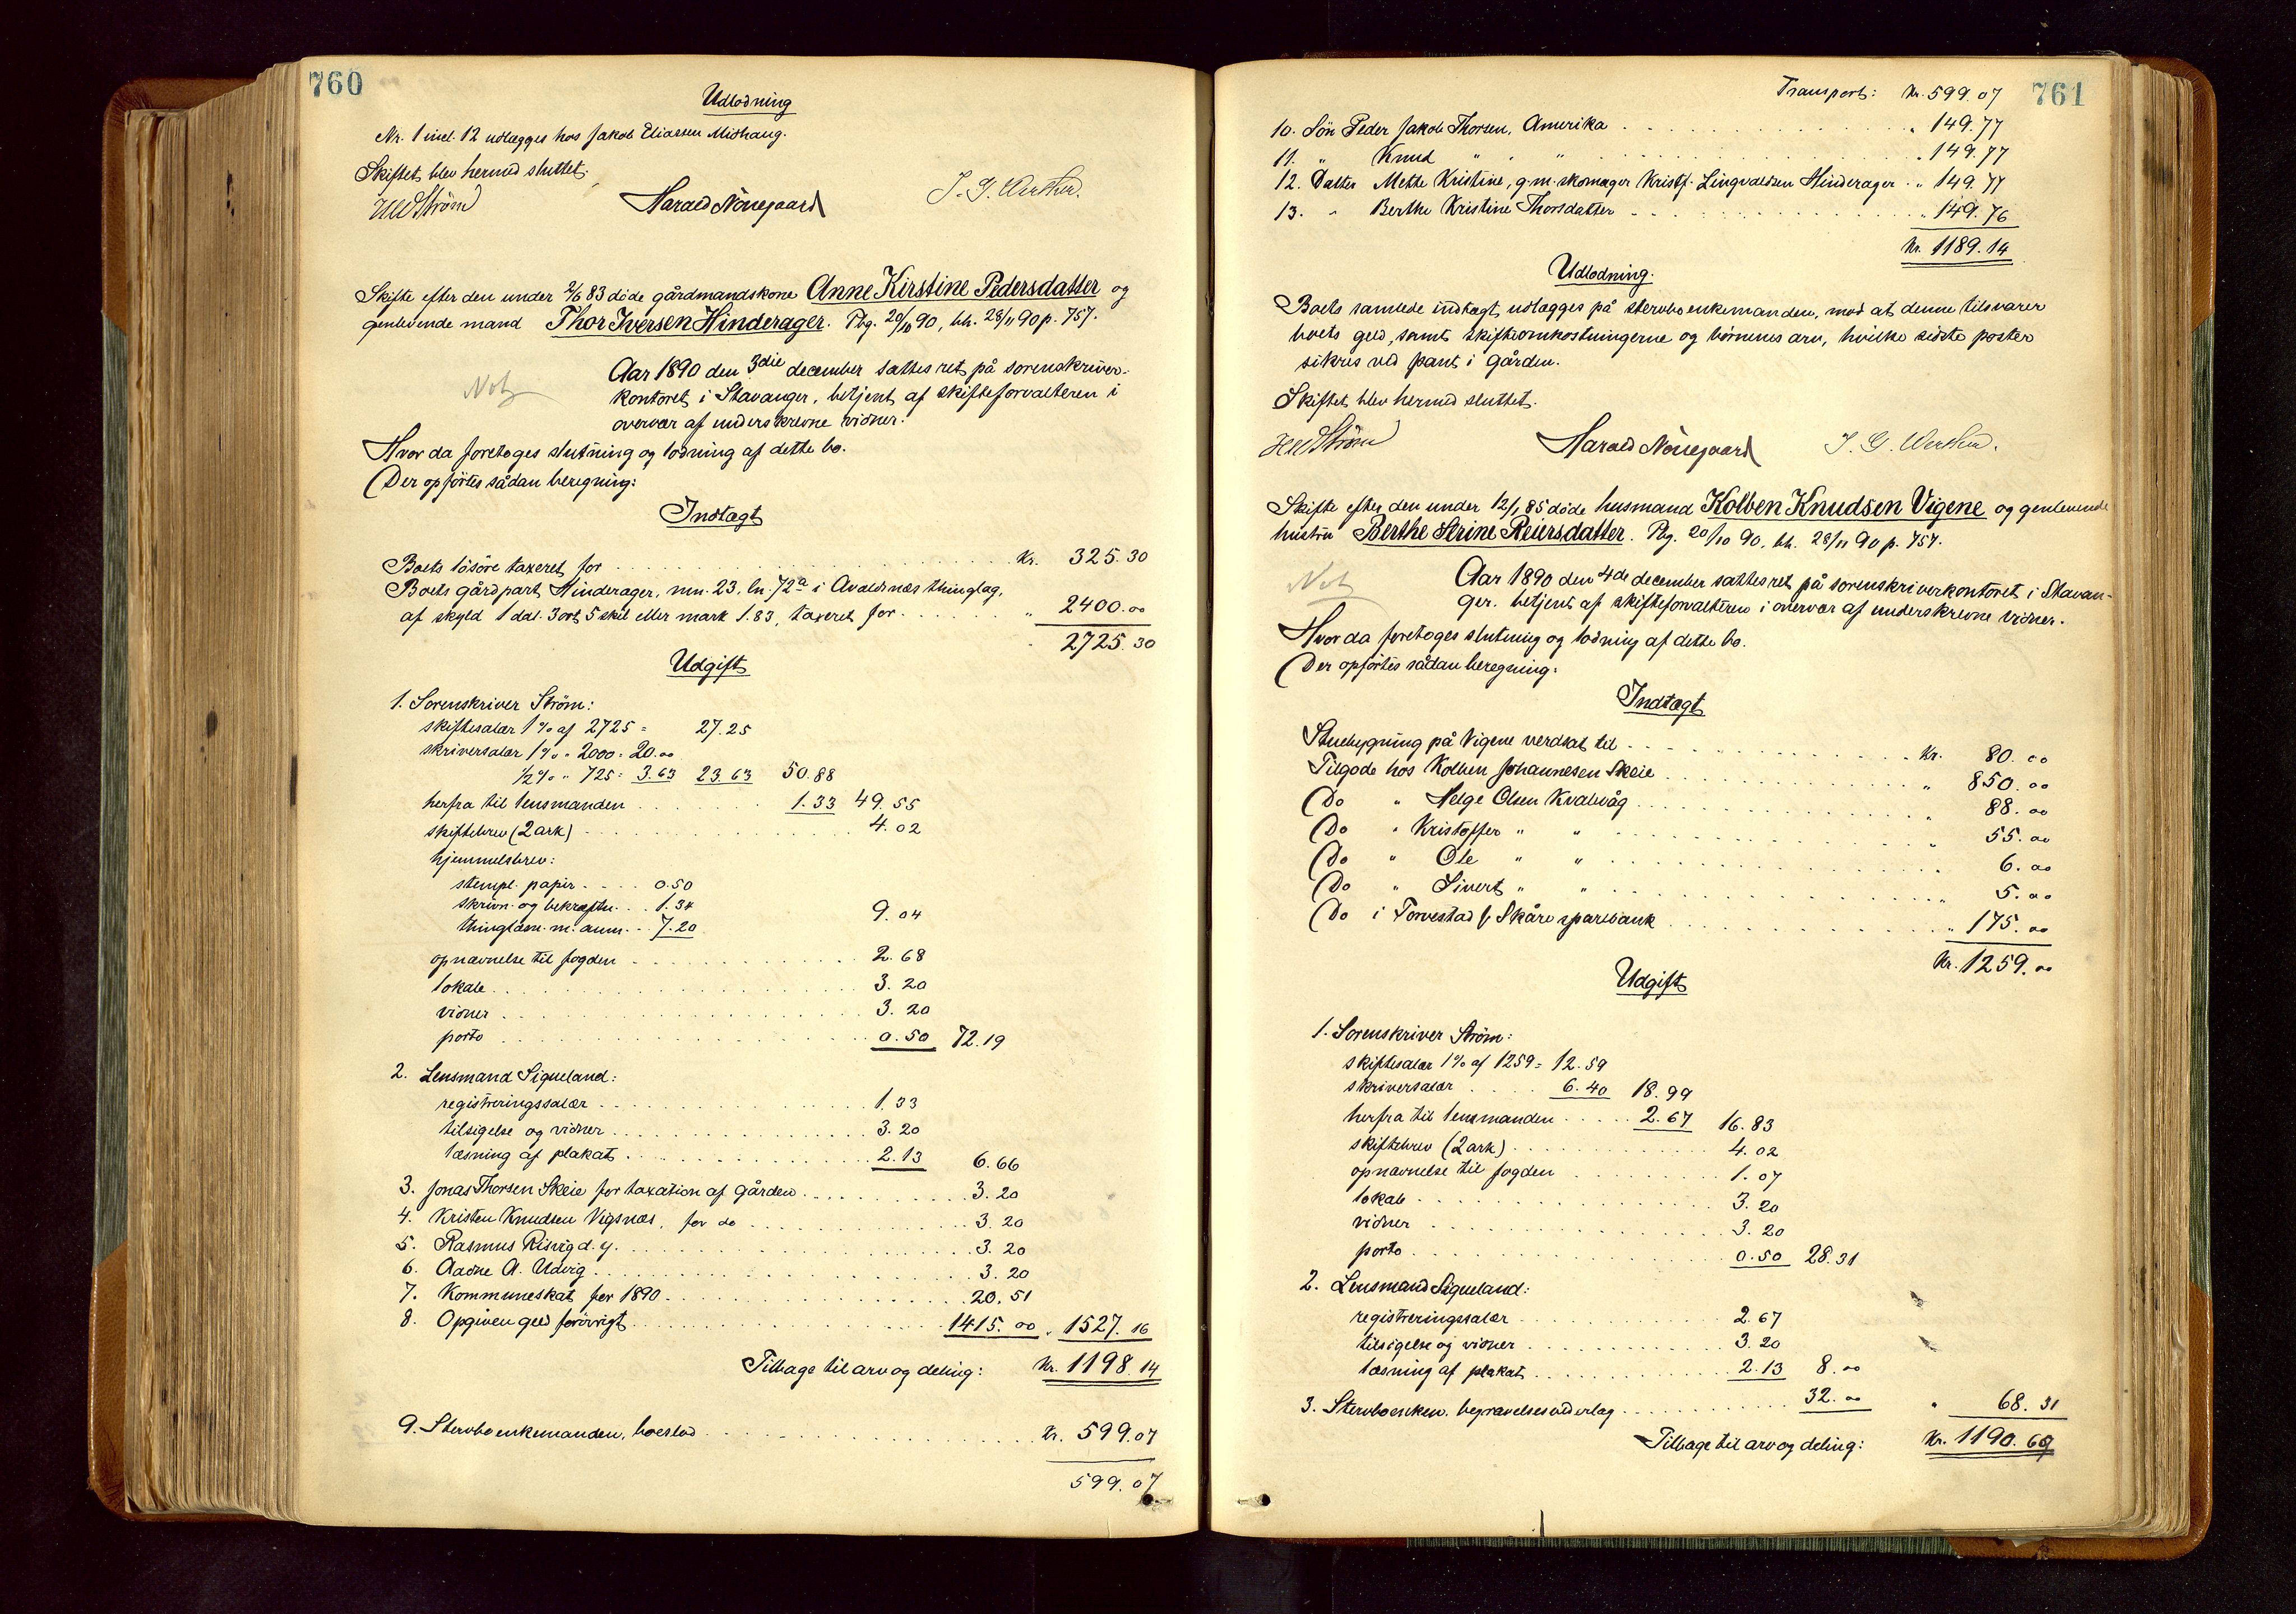 760
Udlodning
Nr. 1 incl. 12 udlægges hos Jakob Eliassen Midhaug.
Skiftet blev hermed sluttet.
Ström Harald Nörregaard J. G.
Skifte efter den under 2/6 83 döde gårdmandskone Anne Kirstine Pedersdatter og
genlevende mand Thor Iversen Hinderager. Pbg. 20/10 90, bh. 28/11 90 p. 757.
Not
Aar 1890 den 3die december sattes ret på sorenskriver-
kontoret i Stavanger, betjent af skifteforvalteren i
overvær af underskrevne vidner.
Hvor da foretoges slutning og lodning af dette bo.
Der opførtes sådan beregning:
Indtægt
Boets lösöre taxeret for Kr. 325.30
Boets gårdpart Hinderager, mn. 23, ln. 72a i Avaldsnæs thinglag,
af skyld 1 dal. 3 ort 5 skil eller mark 1.83, taxeret for " 2400.00
2725.30
Udgift
1. Sorenskriver Ström:
skiftesalær 1% af 2725 = 27.25
skriversalær 1% " 2000 = 20.00
1/2% " 725 = 3.63 23.63 50.88
herfra til lensmanden 1.33 49.55
skiftebrev (2 ark) 4.02
hjemmelsbrev:
stempl. papir 0.50
skrivn. og bekræftn. 1.34
thinglæsn. m. ann. 7.20 9.04
opnævnelse til fogden 2.68
lokale 3.20
vidner 3.20
porto 0.50 72.19
2. Lensmand Siqueland:
registreringssalær 1.33
tilsigelse og vidner 3.20
læsning af plakat 2.13 6.66
3. Jonas Thorsen Skeie for taxation af gården 3.20
4. Kristen Knudsen Vigsnæs, for do 3.20
5. Rasmus Risvig d.y. 3.20
6. Aadne A. Udvig 3.20
7. Kommuneskat for 1890 20.51
8. Opgiven gjeld forövrigt 1415.00 " 1527.16
Tilbage til arv og deling: Kr. 1198.14
9. Stervboenkemanden, boeslod Kr. 599.07
599.07
761
Transport: Kr. 599.07
10. Sön Peder Jakob Thorsen, Amerika " 149.77
11. " Knud " " " " 149.77
12. Datter Methe Kristine, g.m. skomager Kristf. Lingvaldsen Hinderager " 149.77
13. " Berthe Kristine Thorsdatter " 149.76
Kr. 1189.14
Udlodning.
Boets samlede indtægt udlægges på stervboenkemanden, mod at denne tilsvarer
boets gjeld, samt skifteomkostningerne og börnenes arv, hvilke sidste poster
sikres ved pant i gården.
Skiftet blev hermed sluttet.
Ström Harald Nörregaard J. G.
Skifte efter den under 12/1 85 döde husmand Kolben Knudsen Vigene og genlevende
hustru Berthe Serine Reiersdatter. Pbg. 20/10 90, bh. 28/11 90 p. 757.
Not
Aar 1890 den 4de december sattes ret på sorenskriverkontoret i Stavan-
ger, betjent af skifteforvalteren i overvær af underskrevne vidner.
Hvor da foretoges slutning og lodning af dette bo.
Der opförtes sådan beregning:
Indtægt
Stuebygning på Vigene verdsat til Kr. 80.00
Tilgode hos Kolben Johannesen Skeie " 850.00
Do " Helge Olsen Kvalevåg " 88.00
Do " Kristoffer " " " 55.00
Do " Ole " " " 6.00
Do " Sivert " " " 5.00
Do i Torvestad & Skåre sparebank " 175.00
Kr. 1259.00
Udgift
1. Sorenskriver Ström:
skiftesalær 1% af 1259 = 12.59
skriversalær 6.40 18.99
herfra til lensmanden 2.67 16.83
skiftebrev (2 ark) 4.02
opnævnelse til fogden 1.07
lokale 3.20
vidner 3.20
porto 0.50 28.31
2. Lensmand Siqueland:
registreringssalær 2.67
tilsigelse og vidner 3.20
læsning af plakat 2.13 8.00
3. Stervboenken, begravelsesvederlag 32.00 " 68.31
Tilbage til arv og deling: Kr. 1190.69